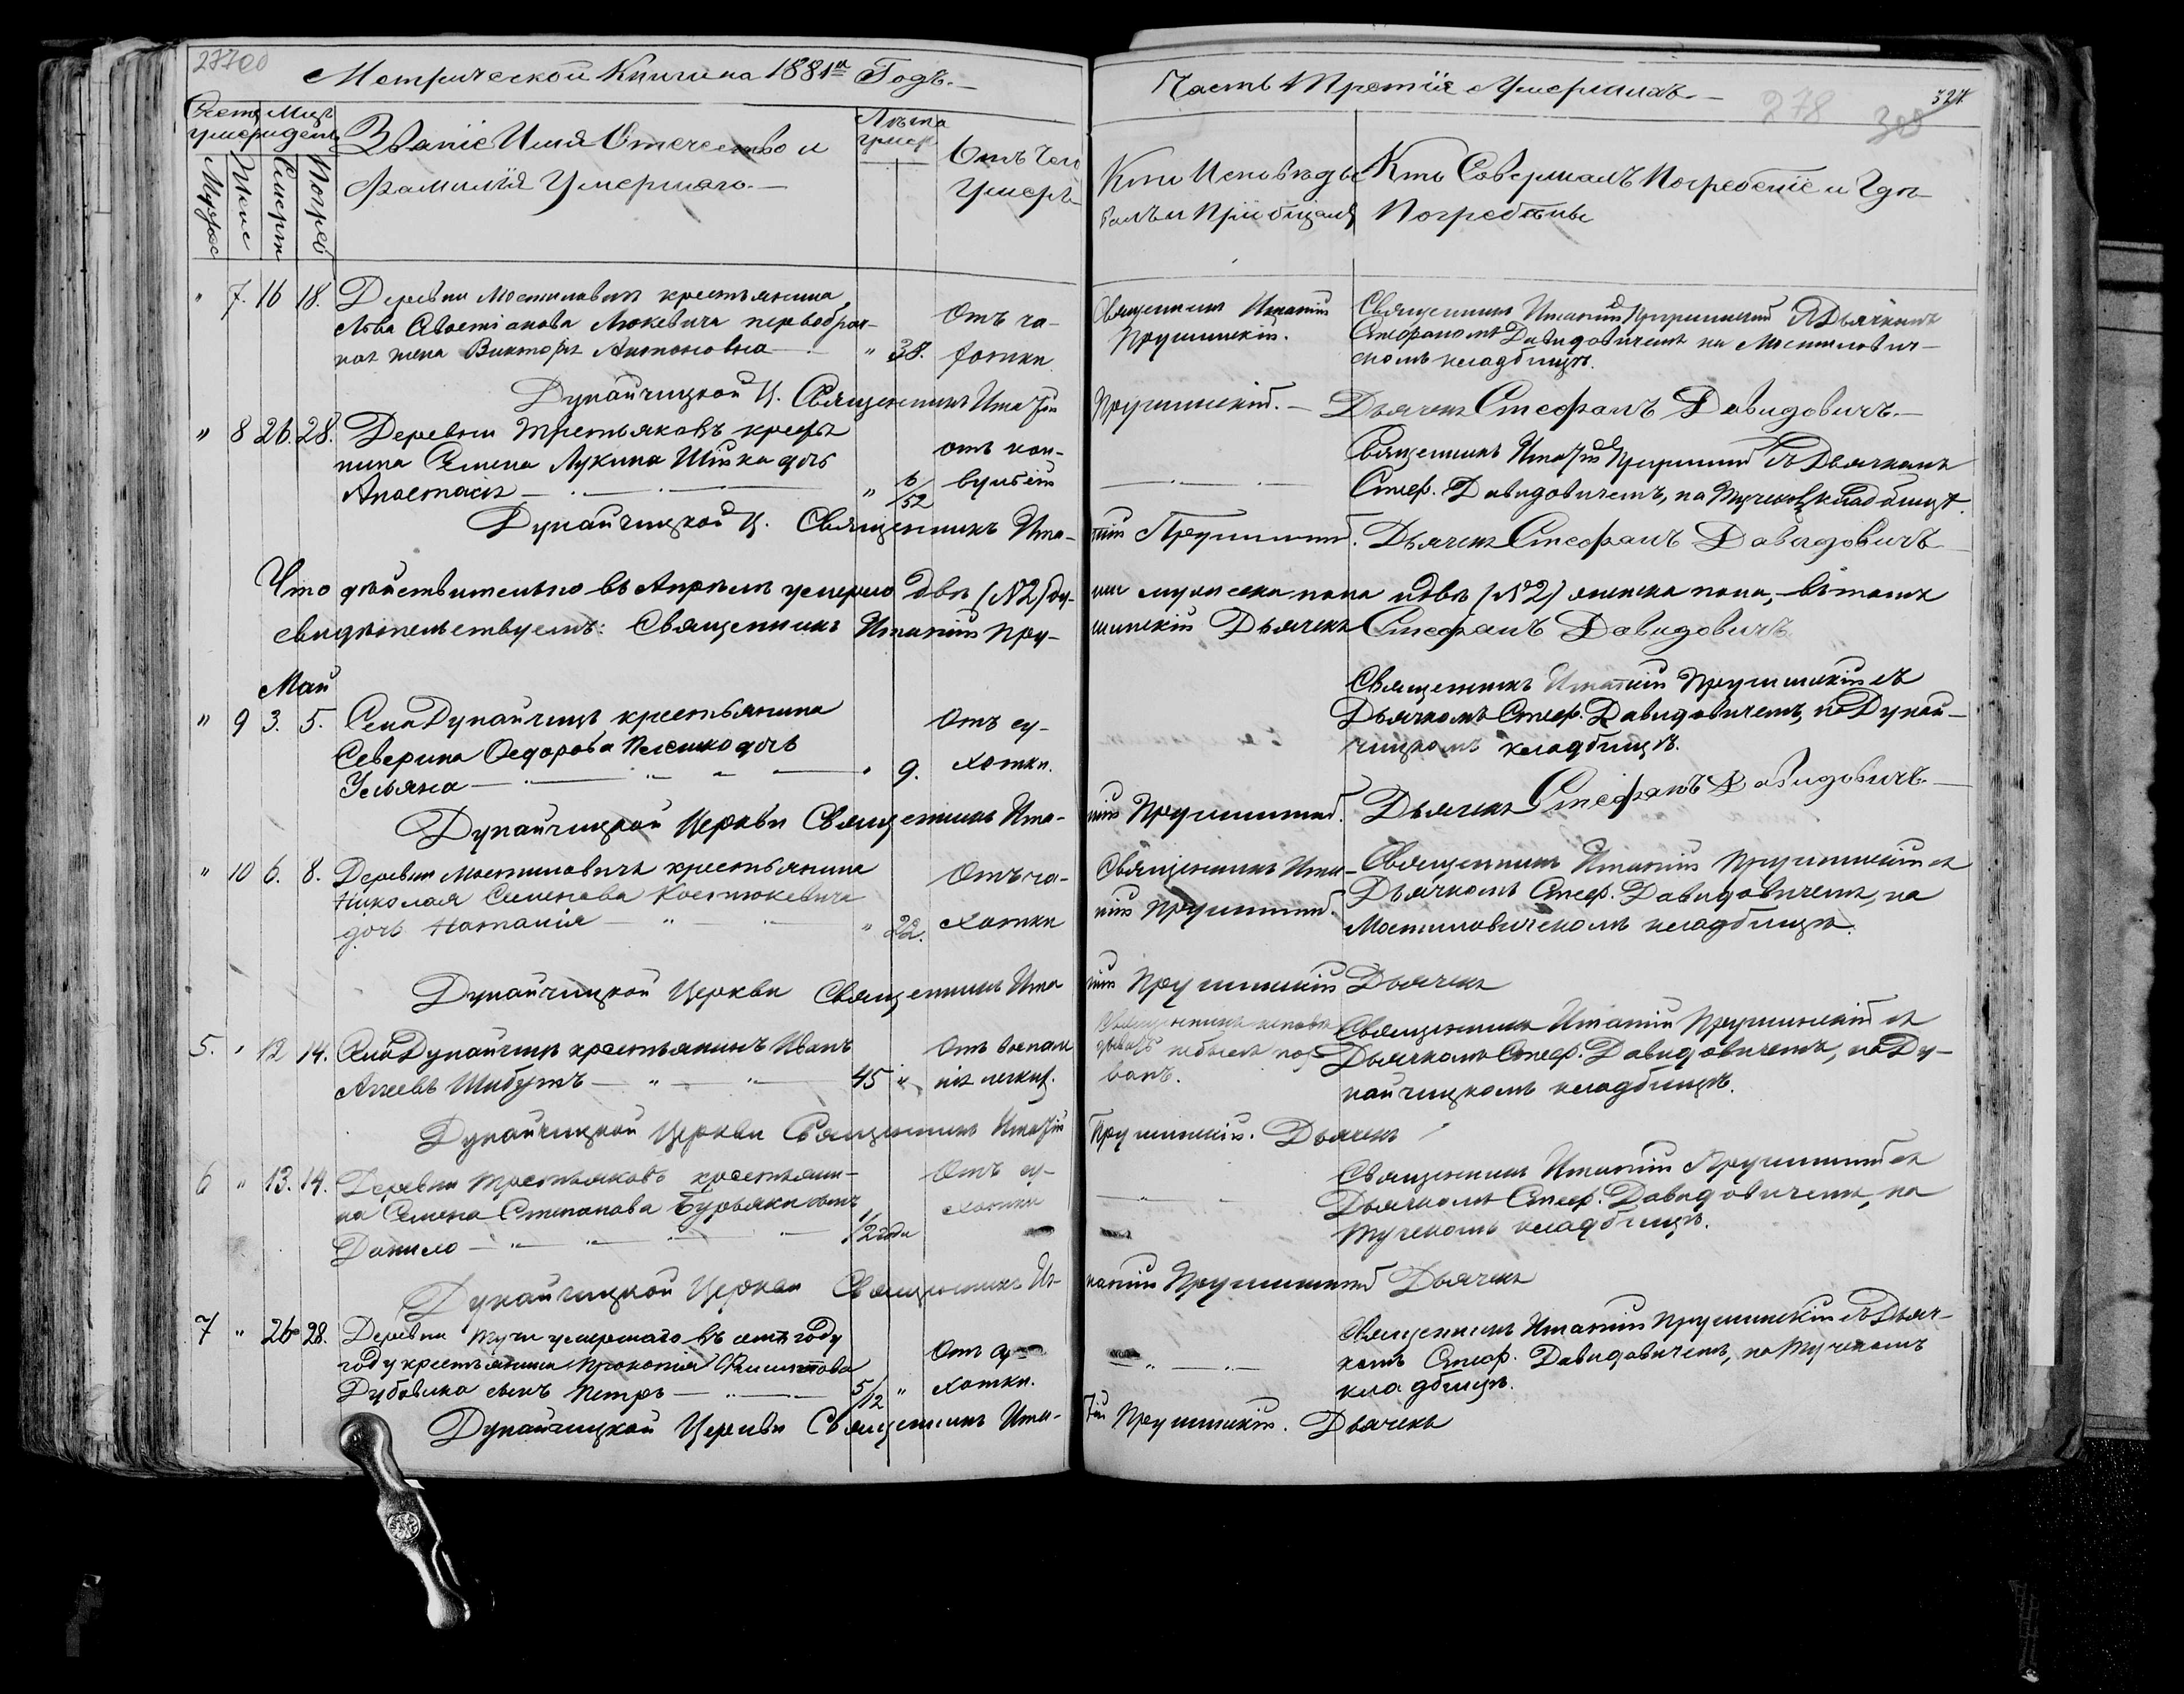 27700
Метрической Книги на 1881й Годъ.
Счетъ умер. Мцъ и день
Мужес Женс Смерт Погреб
Званіе Имя Отечество и
Фамилія Умершаго.
Лѣта умер
Отъ чего
Умеръ
7. 16 18. Деревни Мостиловичъ крестьянина
Льва Севостіанова Люкевича первобрач-
ная жена Викторія Антоновна 38.
Отъ ча-
хотки
Дунайчицкой Ц. Священникъ Игнатій
" 8 26. 28. Деревни Третьяковъ кресть
нина Семена Лукина Шпка дочь
Анастасія " 6/52
отъ кон-
вульсій
Дунайчицкой Ц. Священникъ Игна-
Что дѣйствительно въ Апрѣлѣ умерло двѣ (№2) ду-
свидѣтельствуемъ: Священникъ Игнатій Пру-
Май
" 9 3. 5. Села Дунайчицъ крестьянина
Северина Ѳедорова дочь
Ульяна " 9.
Отъ су-
хотки.
Дунайчицкой Церкви Священникъ Игна-
" 10 6. 8. Деревни Мостиловичъ крестьянина
Николая Семенова Костюкевича
дочь Наталія " 22.
Отъ ча-
хотки
Дунайчицкой Церкви Священникъ Игна
5. " 12 14. Села Дунайчицъ крестьянинъ Иванъ
Шибутъ 45 "
Отъ воспале
нія легких.
Дунайчицкой Церкви Священникъ Игнатій
6 " 13. 14. Деревни Третьяковъ крестьяни-
на Семена Степанова сынъ
Данило 1/2 года
Отъ су-
хотки
Дунайчицкой Церкви Священникъ Иг-
7 " 26 28. Деревни Тучи умершаго въ семъ году
году крестьянина Прокопія Филиппова
Дубовика сынъ Петръ 5/12 "
Отъ су-
хотки.
Дунайчицкой Церкви Священникъ Игна-
Часть Третія Умершихъ.
278 327.
Кто Исповѣды
валъ и Пріобщалъ
Кто Совершалъ Погребеніе и Гдѣ
Погребены
Священникъ Игнатій
Прушинскій.
Священникъ Игнатій Прушинскій съ Дьячкомъ
Стефаномъ Давидовичемъ на Мостилович-
скомъ кладбищѣ.
Прушинскій. Дьячекъ Стефанъ Давидовичъ.
Священникъ Игнатій Прушинскій съ Дьячкомъ
Стеф. Давидовичемъ, на Тучском кладбищѣ.
тій Прушинскій. Дьячекъ Стефанъ Давидовичъ
ши мужеска пола и двѣ (№2) женска пола, въ томъ
шинскій Дьячекъ Стефанъ Давидовичъ
Священникъ Игнатій Прушинскій съ
Дьячкомъ Стеф. Давидовичемъ, на Дунай-
чицкомъ кладбищѣ.
тій Прушинскій. Дьячекъ Стефанъ Давидовичъ
Священникъ Игна-
тій Прушинскій.
Священникъ Игнатій Прушинскій съ
Дьячкомъ Стеф. Давидовичемъ, на
Мостиловичскомъ кладбищѣ.
тій Прушинскій Дьячекъ
Священникъ исповѣ
дывать небылъ поз-
ванъ.
Священникъ Игнатій Прушинскій съ
Дьячкомъ Стеф. Давидовичемъ, на Ду-
найчицкомъ кладбищѣ.
Прушинскій. Дьячекъ
Священникъ Игнатій Прушинскій съ
Дьячкомъ Стеф. Давидовичемъ, на
Тучскомъ кладбищѣ.
натій Прушинскій Дьячекъ
Священникъ Игнатій Прушинскій съ Дьяч-
комъ Стеф. Давидовичемъ, на Тучскомъ
кладбищѣ.
тій Прушинскій. Дьячекъ